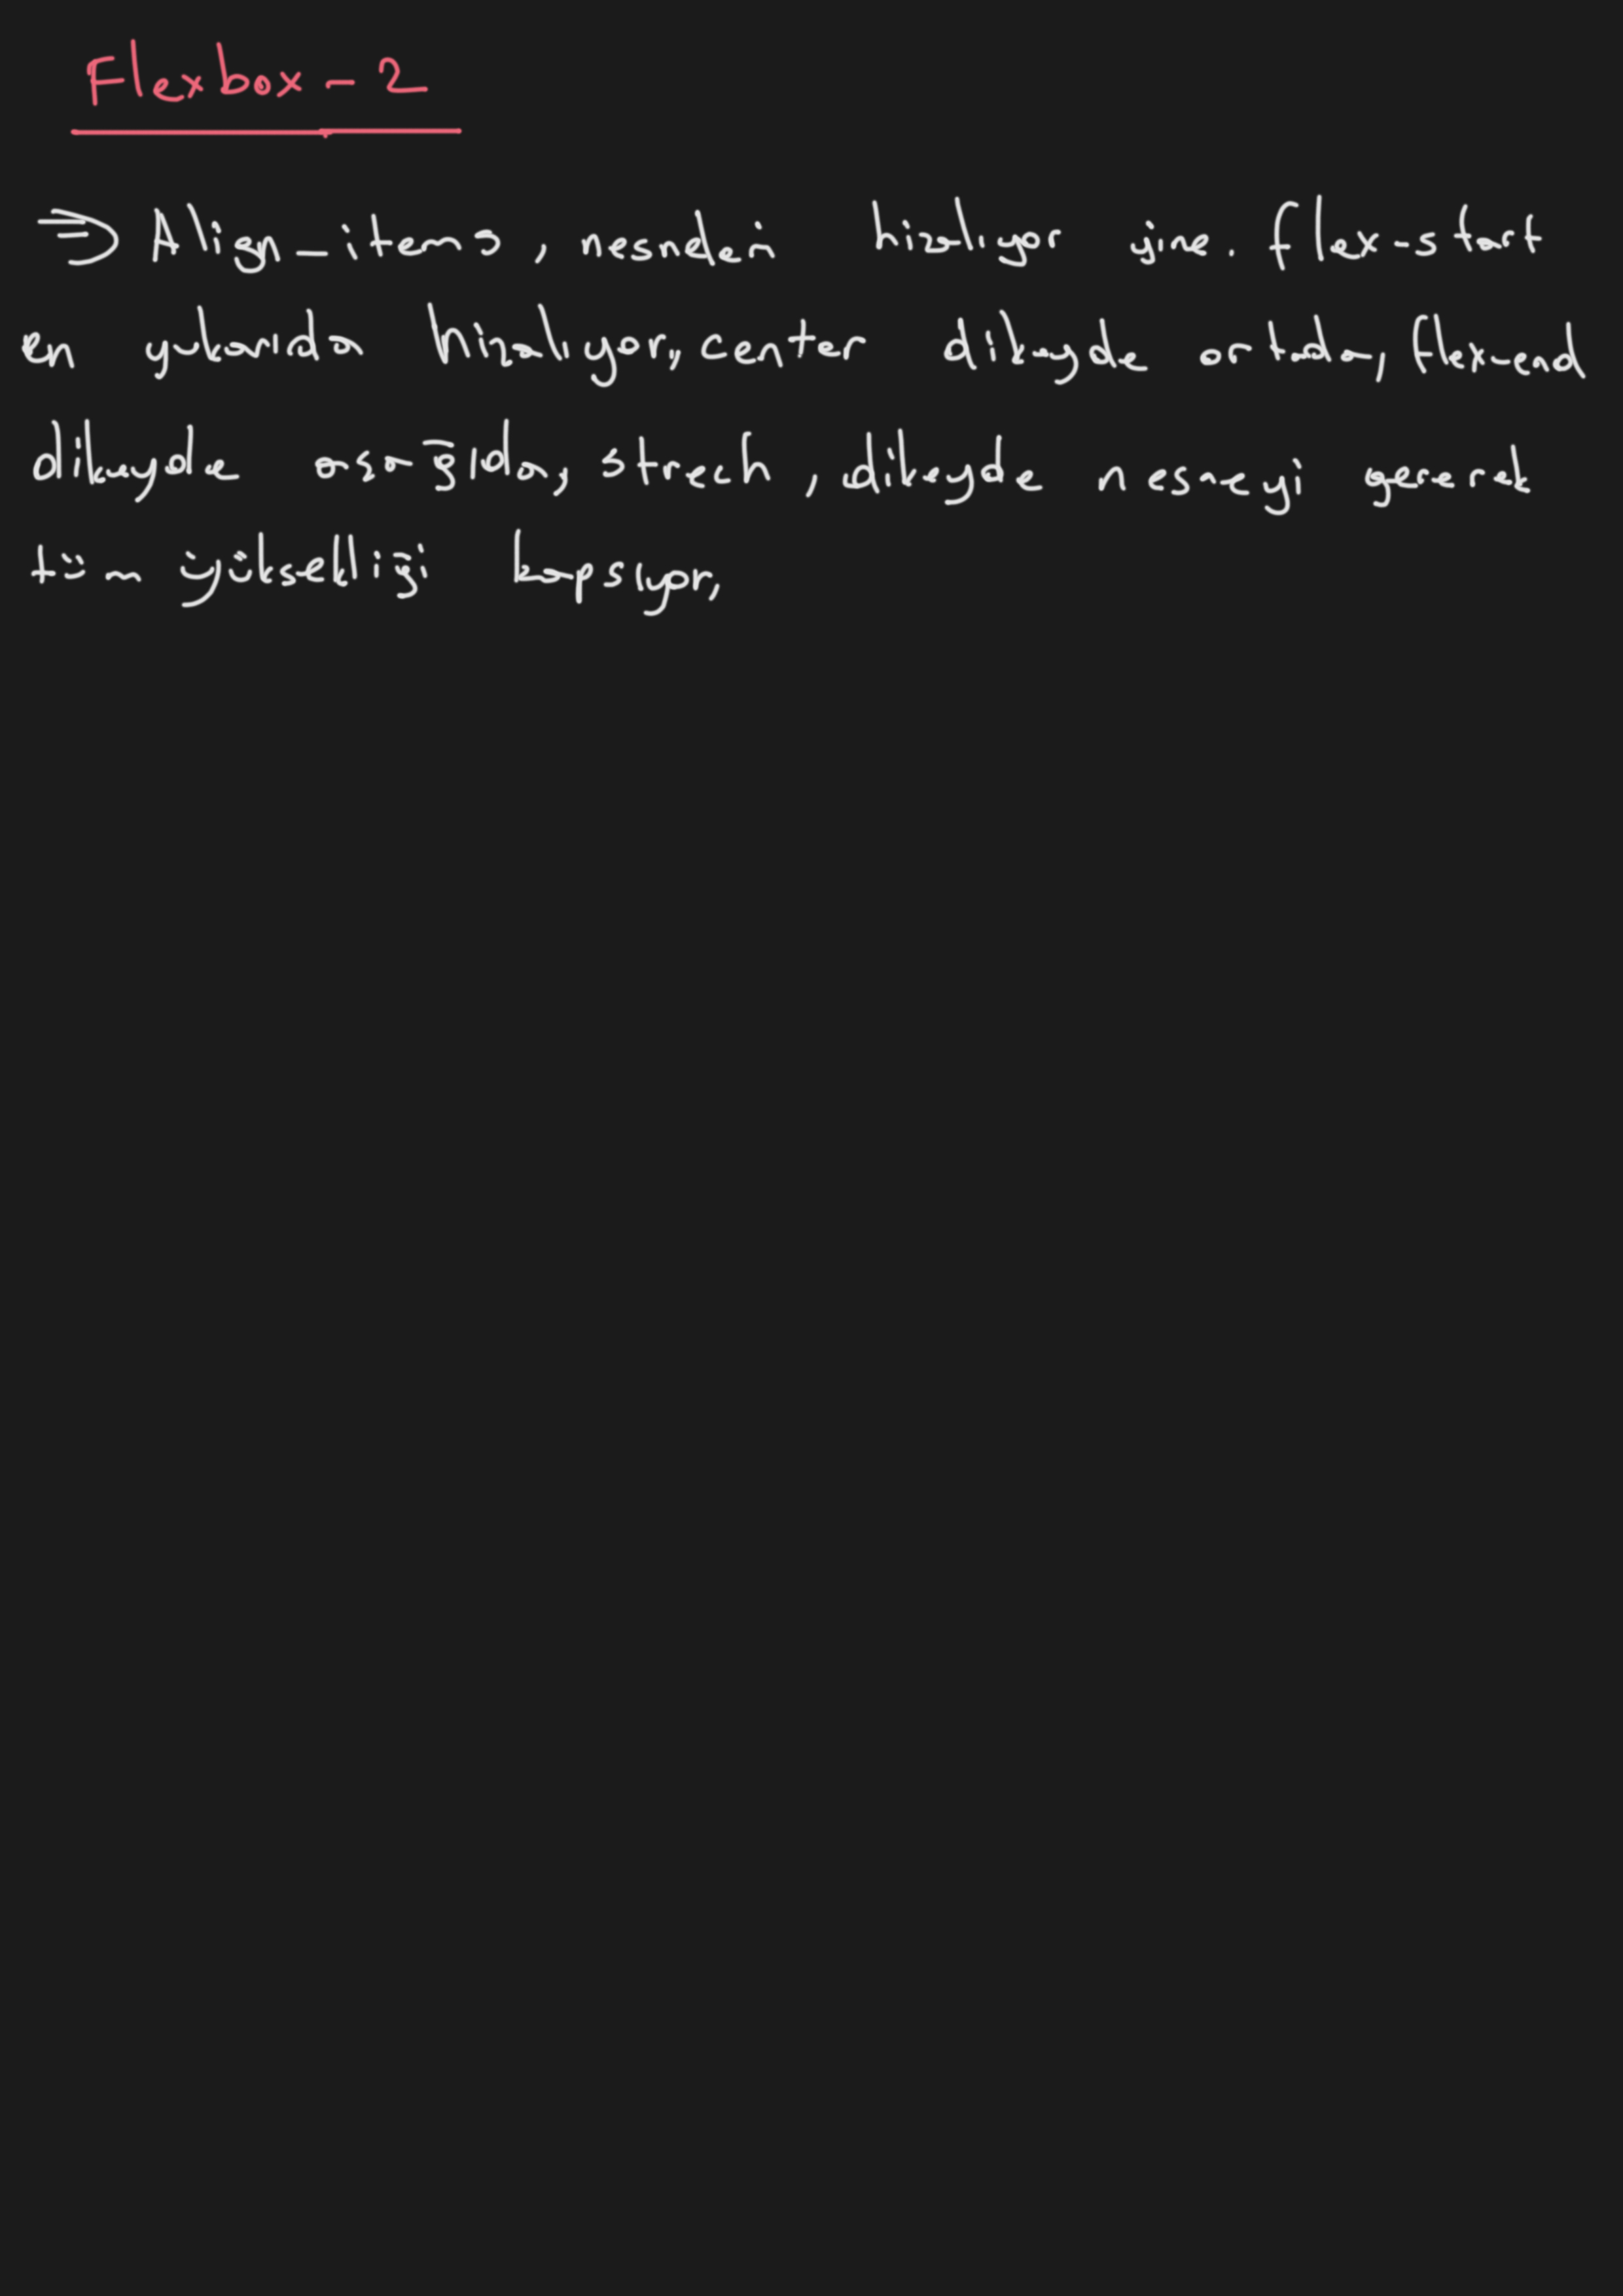 Flexbox-2
⇒ Align-items, nesneleri hizalıyor yine. flex-start
en yukarıda hizalıyor, center dikeyde ortada, flex-end
dikeyde aşağıda, strech, dikeyde nesneyi gererek
tüm yüksekliği kapsıyor,